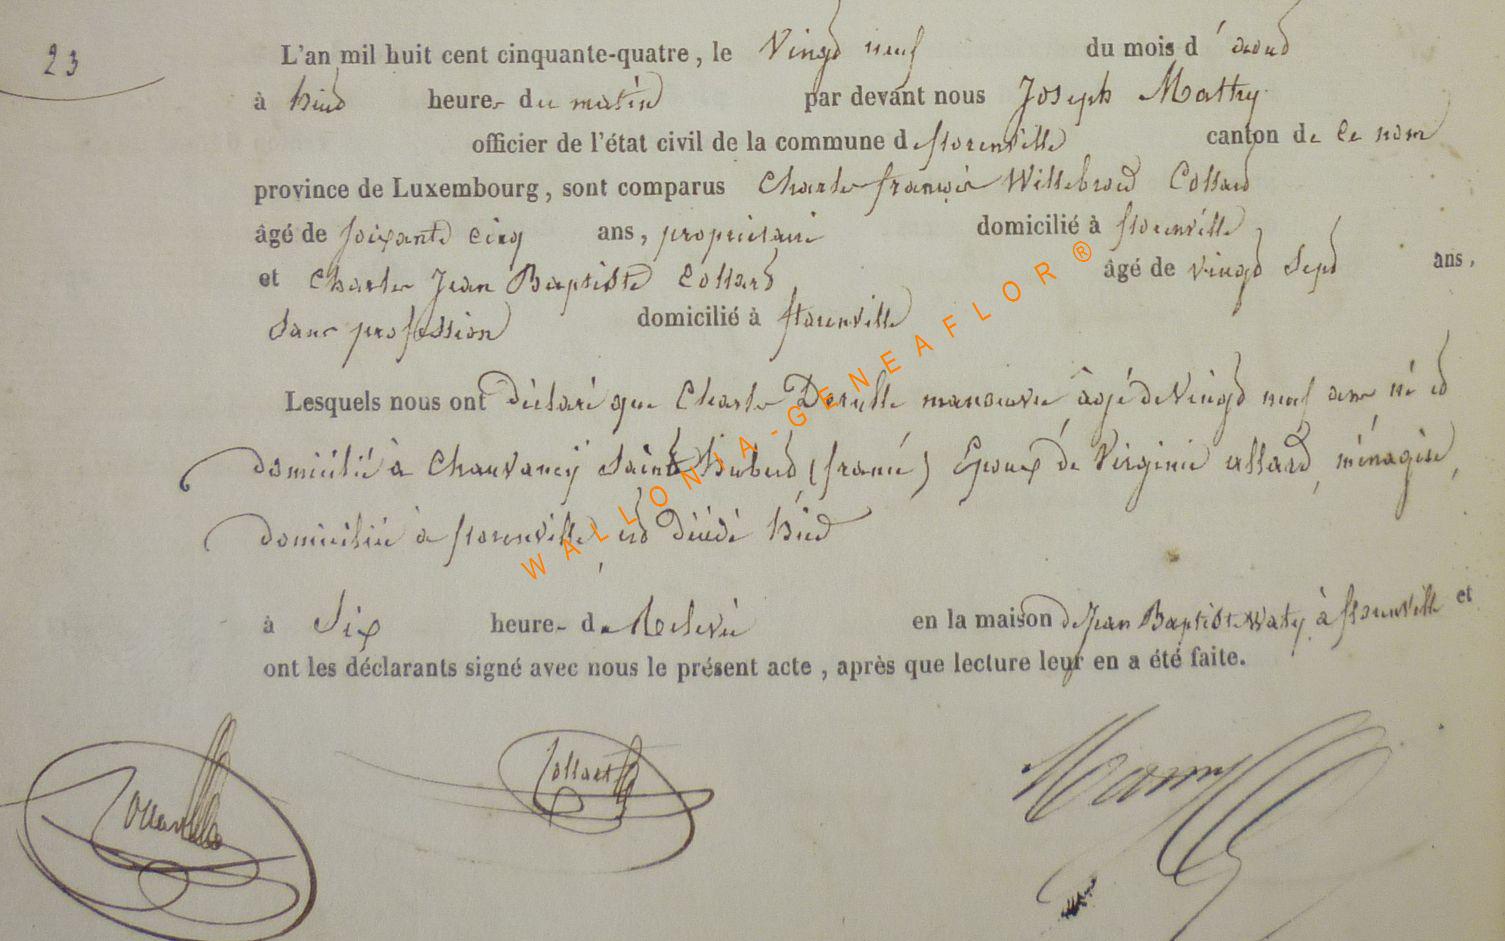 23
L'an mil huit cent cinquante-quatre, le Vingt neuf du mois d'aout
à huit heures du matin par devant nous Joseph Mathy
officier de l'état civil de la commune de florenville canton de ce nom
province de Luxembourg, sont comparus Charles françois Willebrord Collard
âgé de soixante cinq ans, propriétaire domicilié à florenville
et Charles Jean Baptiste Collard âgé de vingt sept ans,
sans profession domicilié à florenville
Lesquels nous ont déclaré que Charles manœuvre âgé de Vingt neuf ans né et
domicilié à Chauvancy Saint hubert (france) Epoux de Virginie allard, ménagère,
domiciliée à florenville, est décédé hier
à Six heures de Relevée en la maison de Jean Baptiste Waty à florenville et
ont les déclarants signé avec nous le présent acte, après que lecture leur en a été faite.
WALLONIA-GENEAFLOR®
Collard